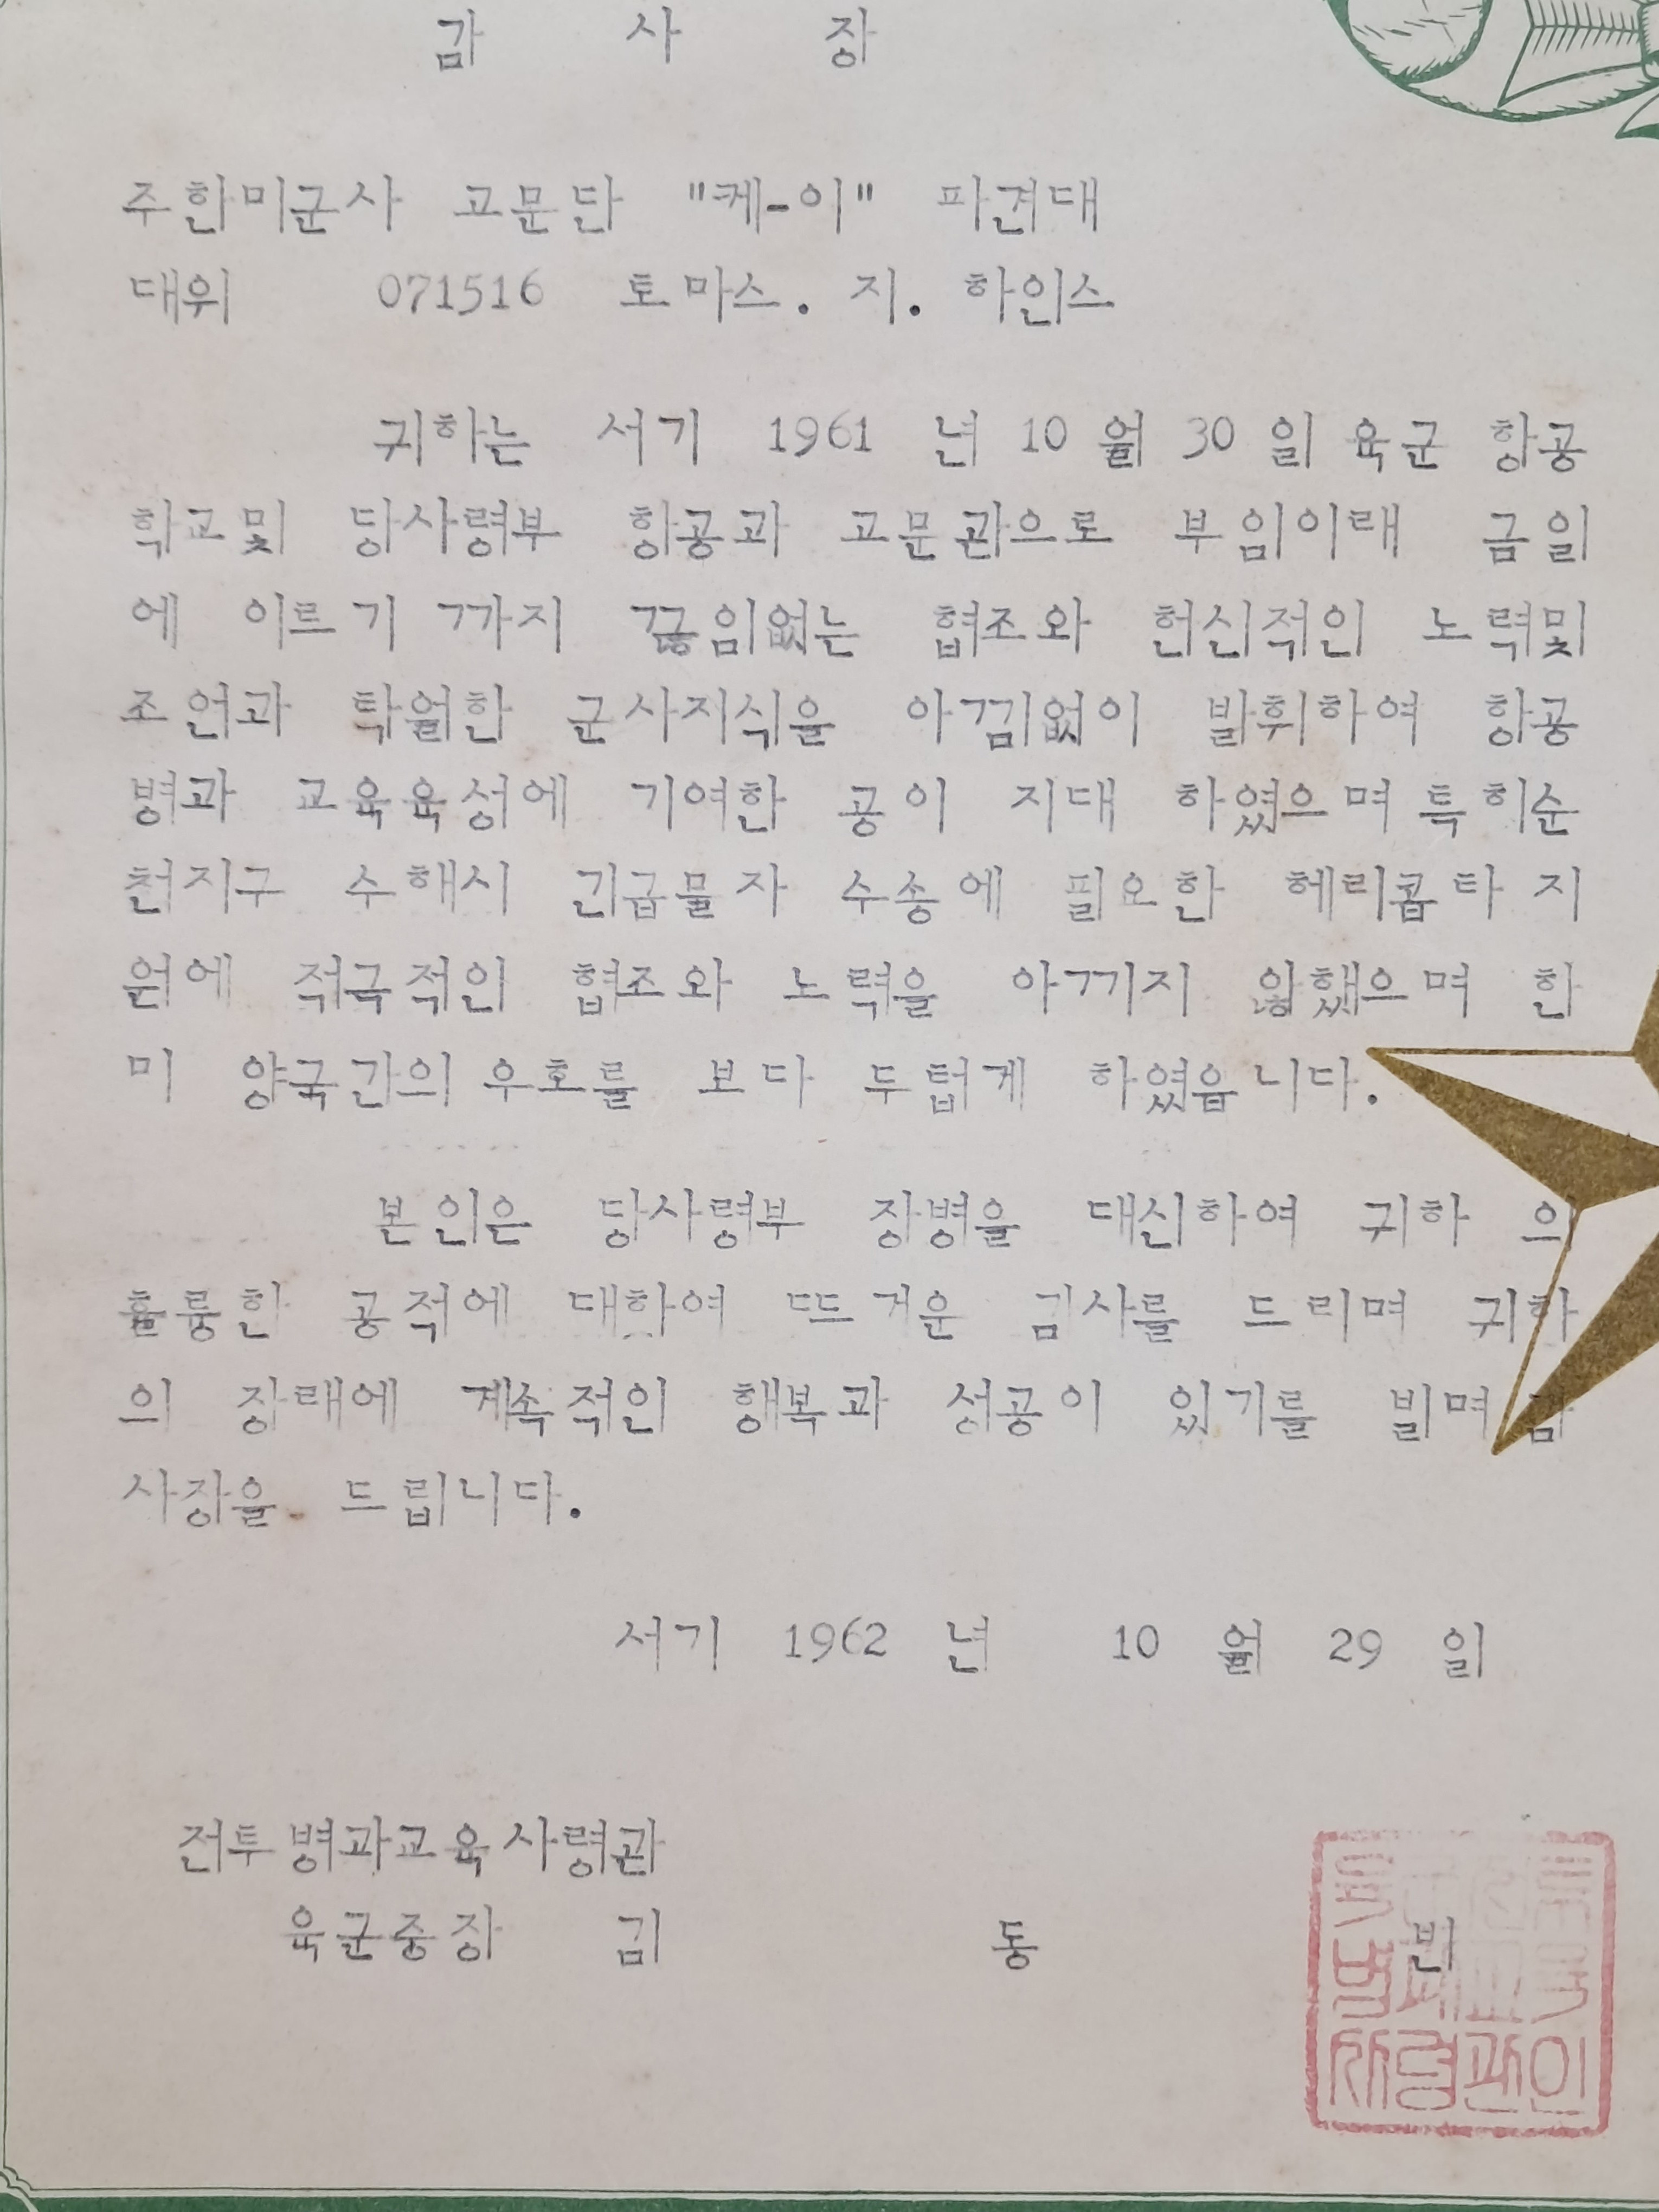 감 사 장
주한미군사 고문단 "케-이" 파견대
대위 071516 토마스. 지. 하인스
귀하는 서기 1961 년 10 월 30 일 육군 항공
학교및 당사령부 항공과 고문관으로 부임이래 금일
에 이르기 까지 끊임없는 협조와 헌신적인 노력및
조언과 탁월한 군사지식을 아낌없이 발휘하여 항공
병과 교육육성에 기여한 공이 지대 하였으며 특히순
천지구 수해시 긴급물자 수송에 필요한 헤리콥타 지
원에 적극적인 협조와 노력을 아끼지 않했으며 한
미 양국간의 우호를 보다 두텁게 하였읍니다.
본인은 당사령부 장병을 대신하여 귀하 의
훌륭한 공적에 대하여 뜨거운 감사를 드리며 귀하
의 장래에 계속적인 행복과 성공이 있기를 빌며 감
사장을 드립니다.
서기 1962 년 10 월 29 일
전투병과교육사령관
육군중장 김 동 빈
사령관인